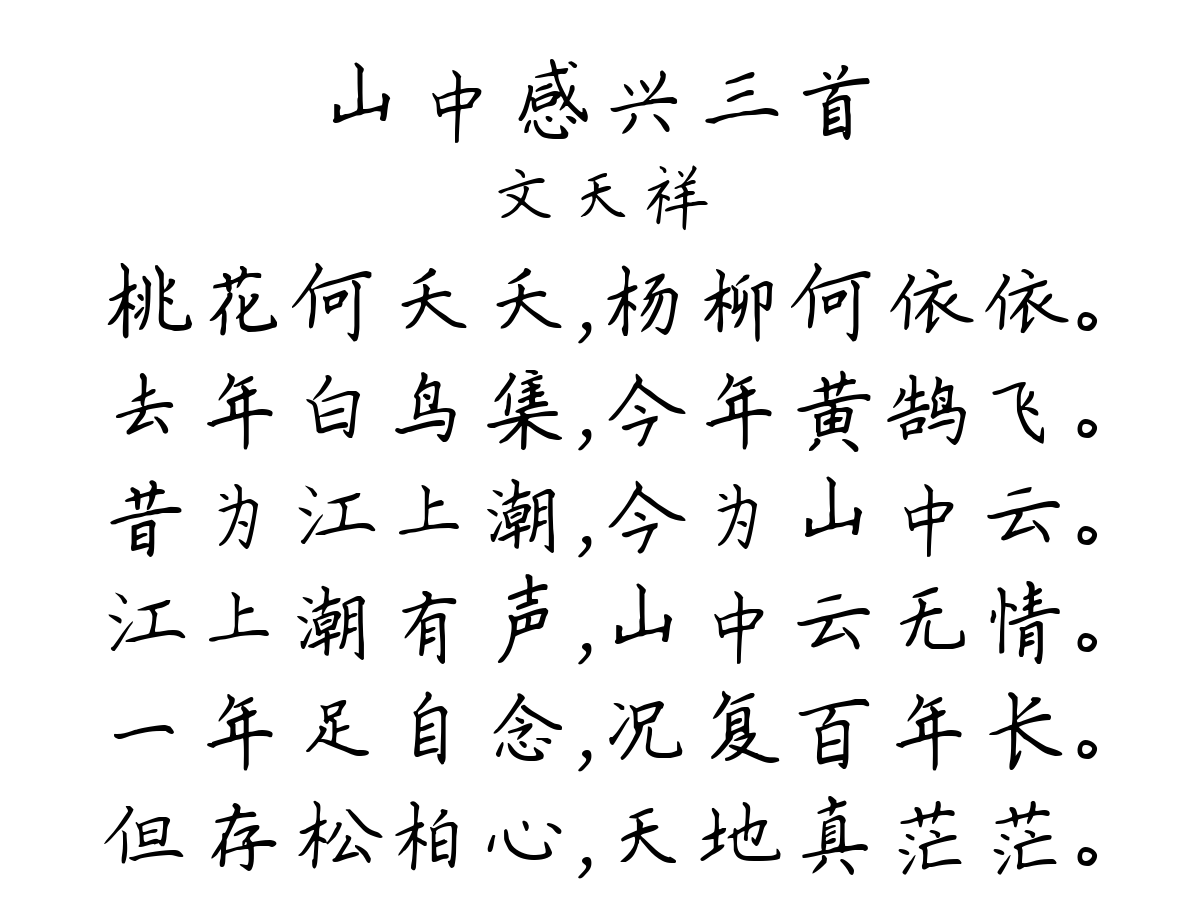 山中感兴三首
文天祥
桃花何夭夭,杨柳何依依。
去年白鸟集,今年黄鹄飞。
昔为江上潮,今为山中云。
江上潮有声,山中云无情。
一年足自念,况复百年长。
但存松柏心,天地真茫茫。